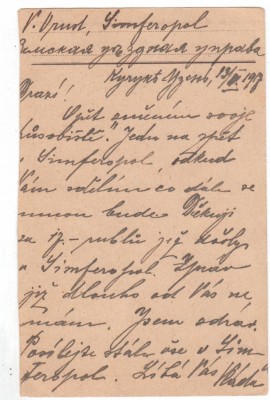 V. Vrud, Simferopol
Земская уѣздная управа
13/XI 1917
Drazí!
Opět oměním svoje
působiště. Jedu na zpět
v Simferopol, odkud
Vám sdělím co dále se
mnou bude. Děkuji
za 17.- rublů již došly
v Simferopol. Zpráv
již dlouho od Vás ne
mám. Jsem zdráv.
Posílejte stále vše v Sim
feropol. Líbá Vás Ráďa